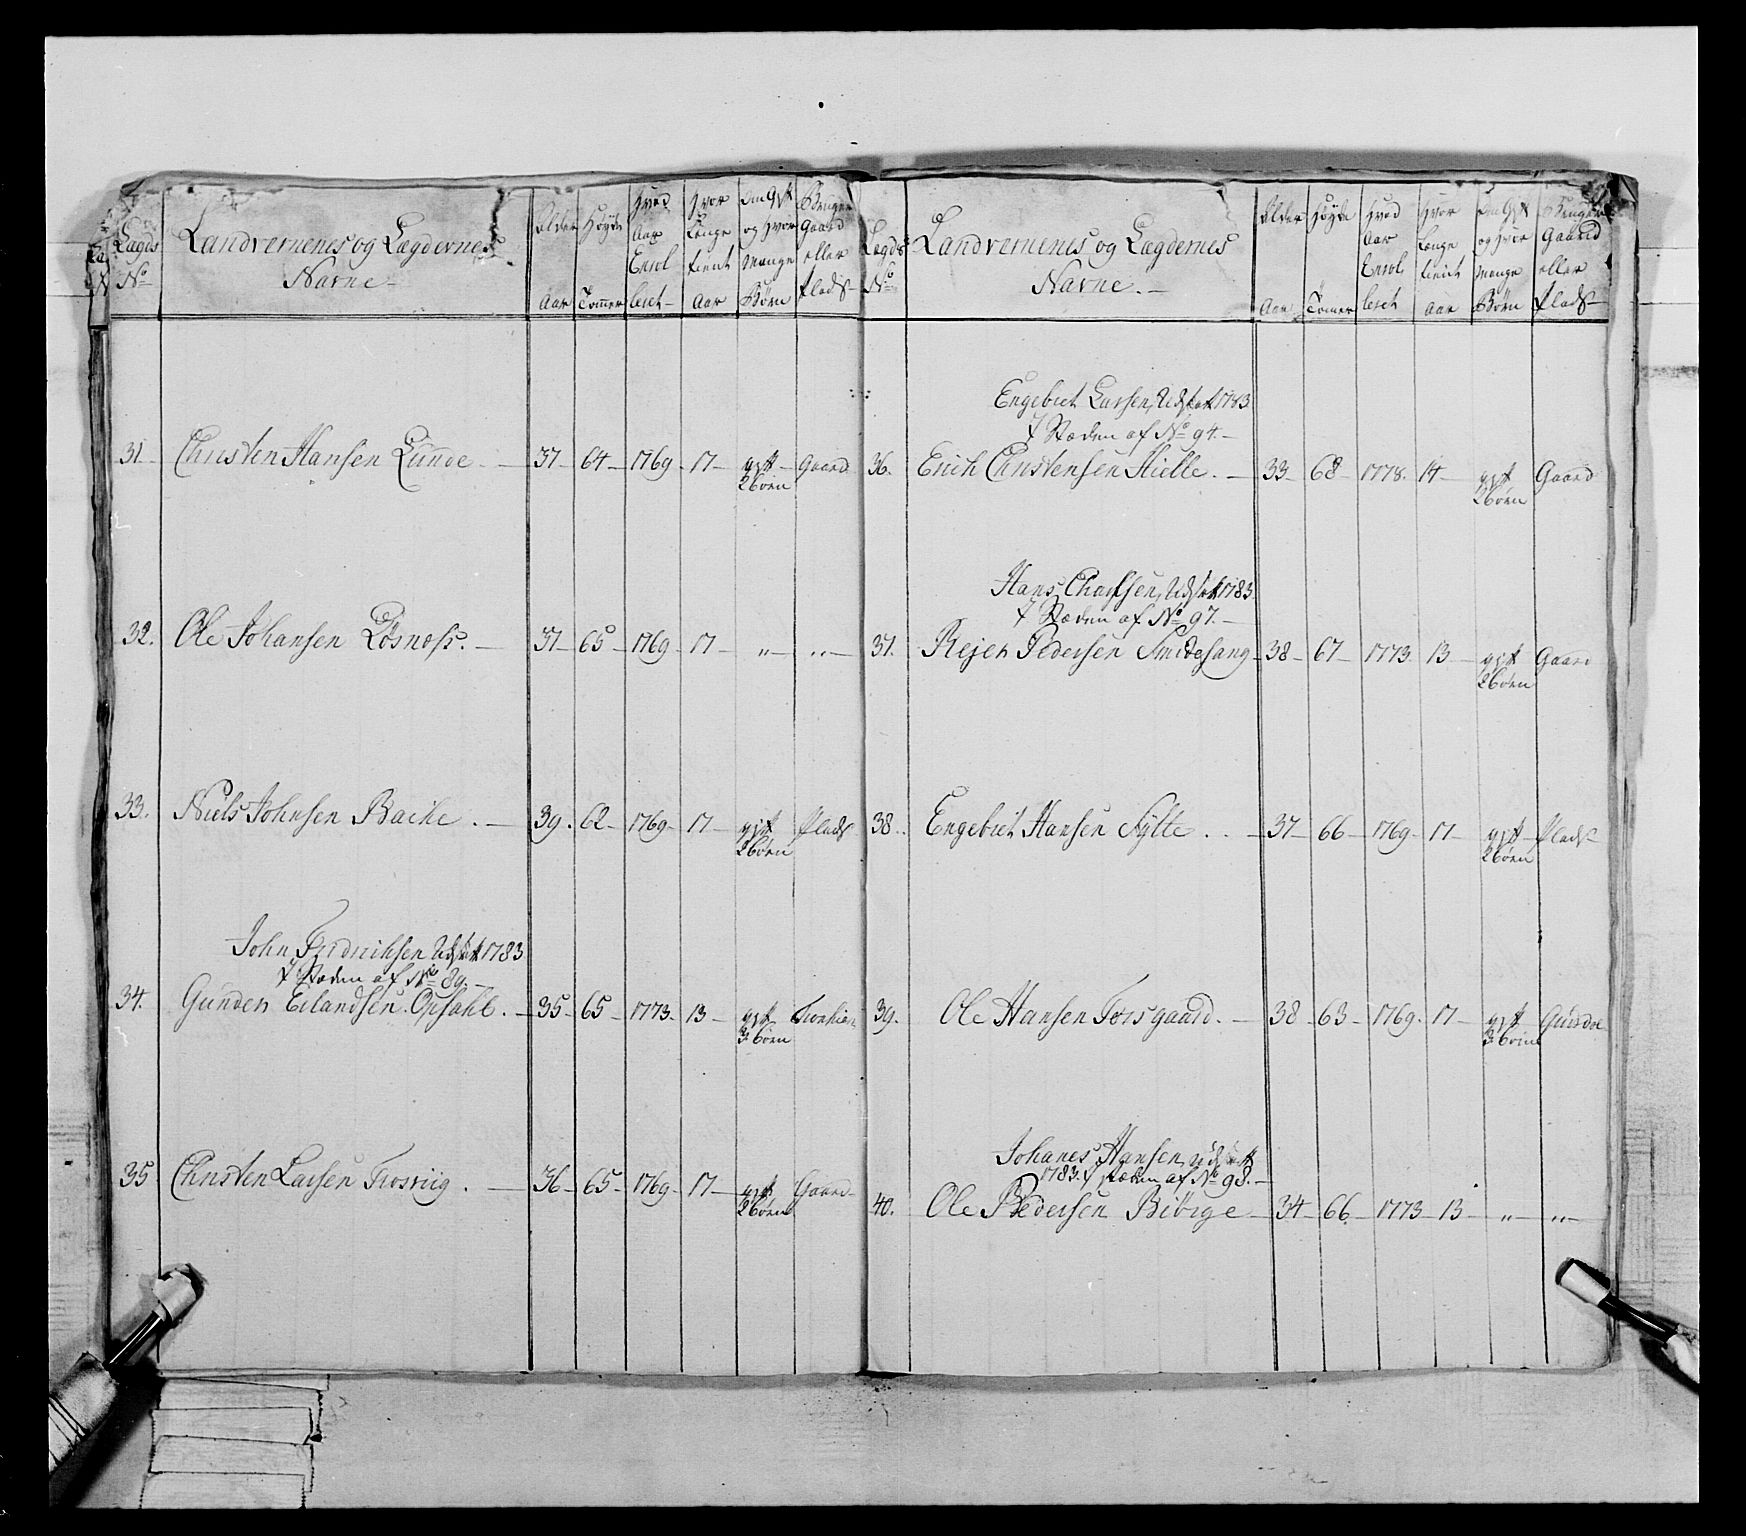 Lægds No Landvernenes og Lægdernes Navne Alder Aar Høyde Tommer Hvad Aar Enrolleret Hvor Lenge tient Aar Om Gift og hvor Mange Børn Bruger Gaard eller Plads
31. Christen Hansen Lunde. 37 64 1769 17 gift 2 børn Gaard
32. Ole Johansen Løsnoss. 37 65 1769 17 " "
33. Niels Johnsen Bache. 39. 62 1769 17 gift 2 børn Plads
John Fridrichsen Udsat 1783
i Stæden af No 89.
34. Gunder Erlandsen Opsahl. 35 65 1773 13 gift 3 børn
35 Christen Larsen Trosviig. 36 65 1769 17 gift 2 børn Gaard
Lægds No Landvernenes og Lægdernes Navne. Alder Aar Høyde Tomer Hvad Aar Enrolleret Hvor Lenge tient Aar Om Gift og hvor Mange Børn Bruger Gaard eller Plads
Engebret Larsen, Udsat 1783
i Stæden af No 94.
36. Erich Christensen Hielle. 33 68 1778. 14 gift 2 børn Gaard
Hans Udsat 1783.
i Stæden af No 97.
37. Rejer Pedersen Smedesang 38 67 1773 13 gift 2 børn Gaard
38. Engebret Hansen Fylte. 37 66 1769 17 gift 2 børn Plads
39. Ole Hansen Forsgaard. 38 63 1769. 17 gift 3 børn
Johanes Hansen, Udsatt
1783 i stæden af No 98.
40. Ole Pedersen Biörge 34 66 1773 13 " "